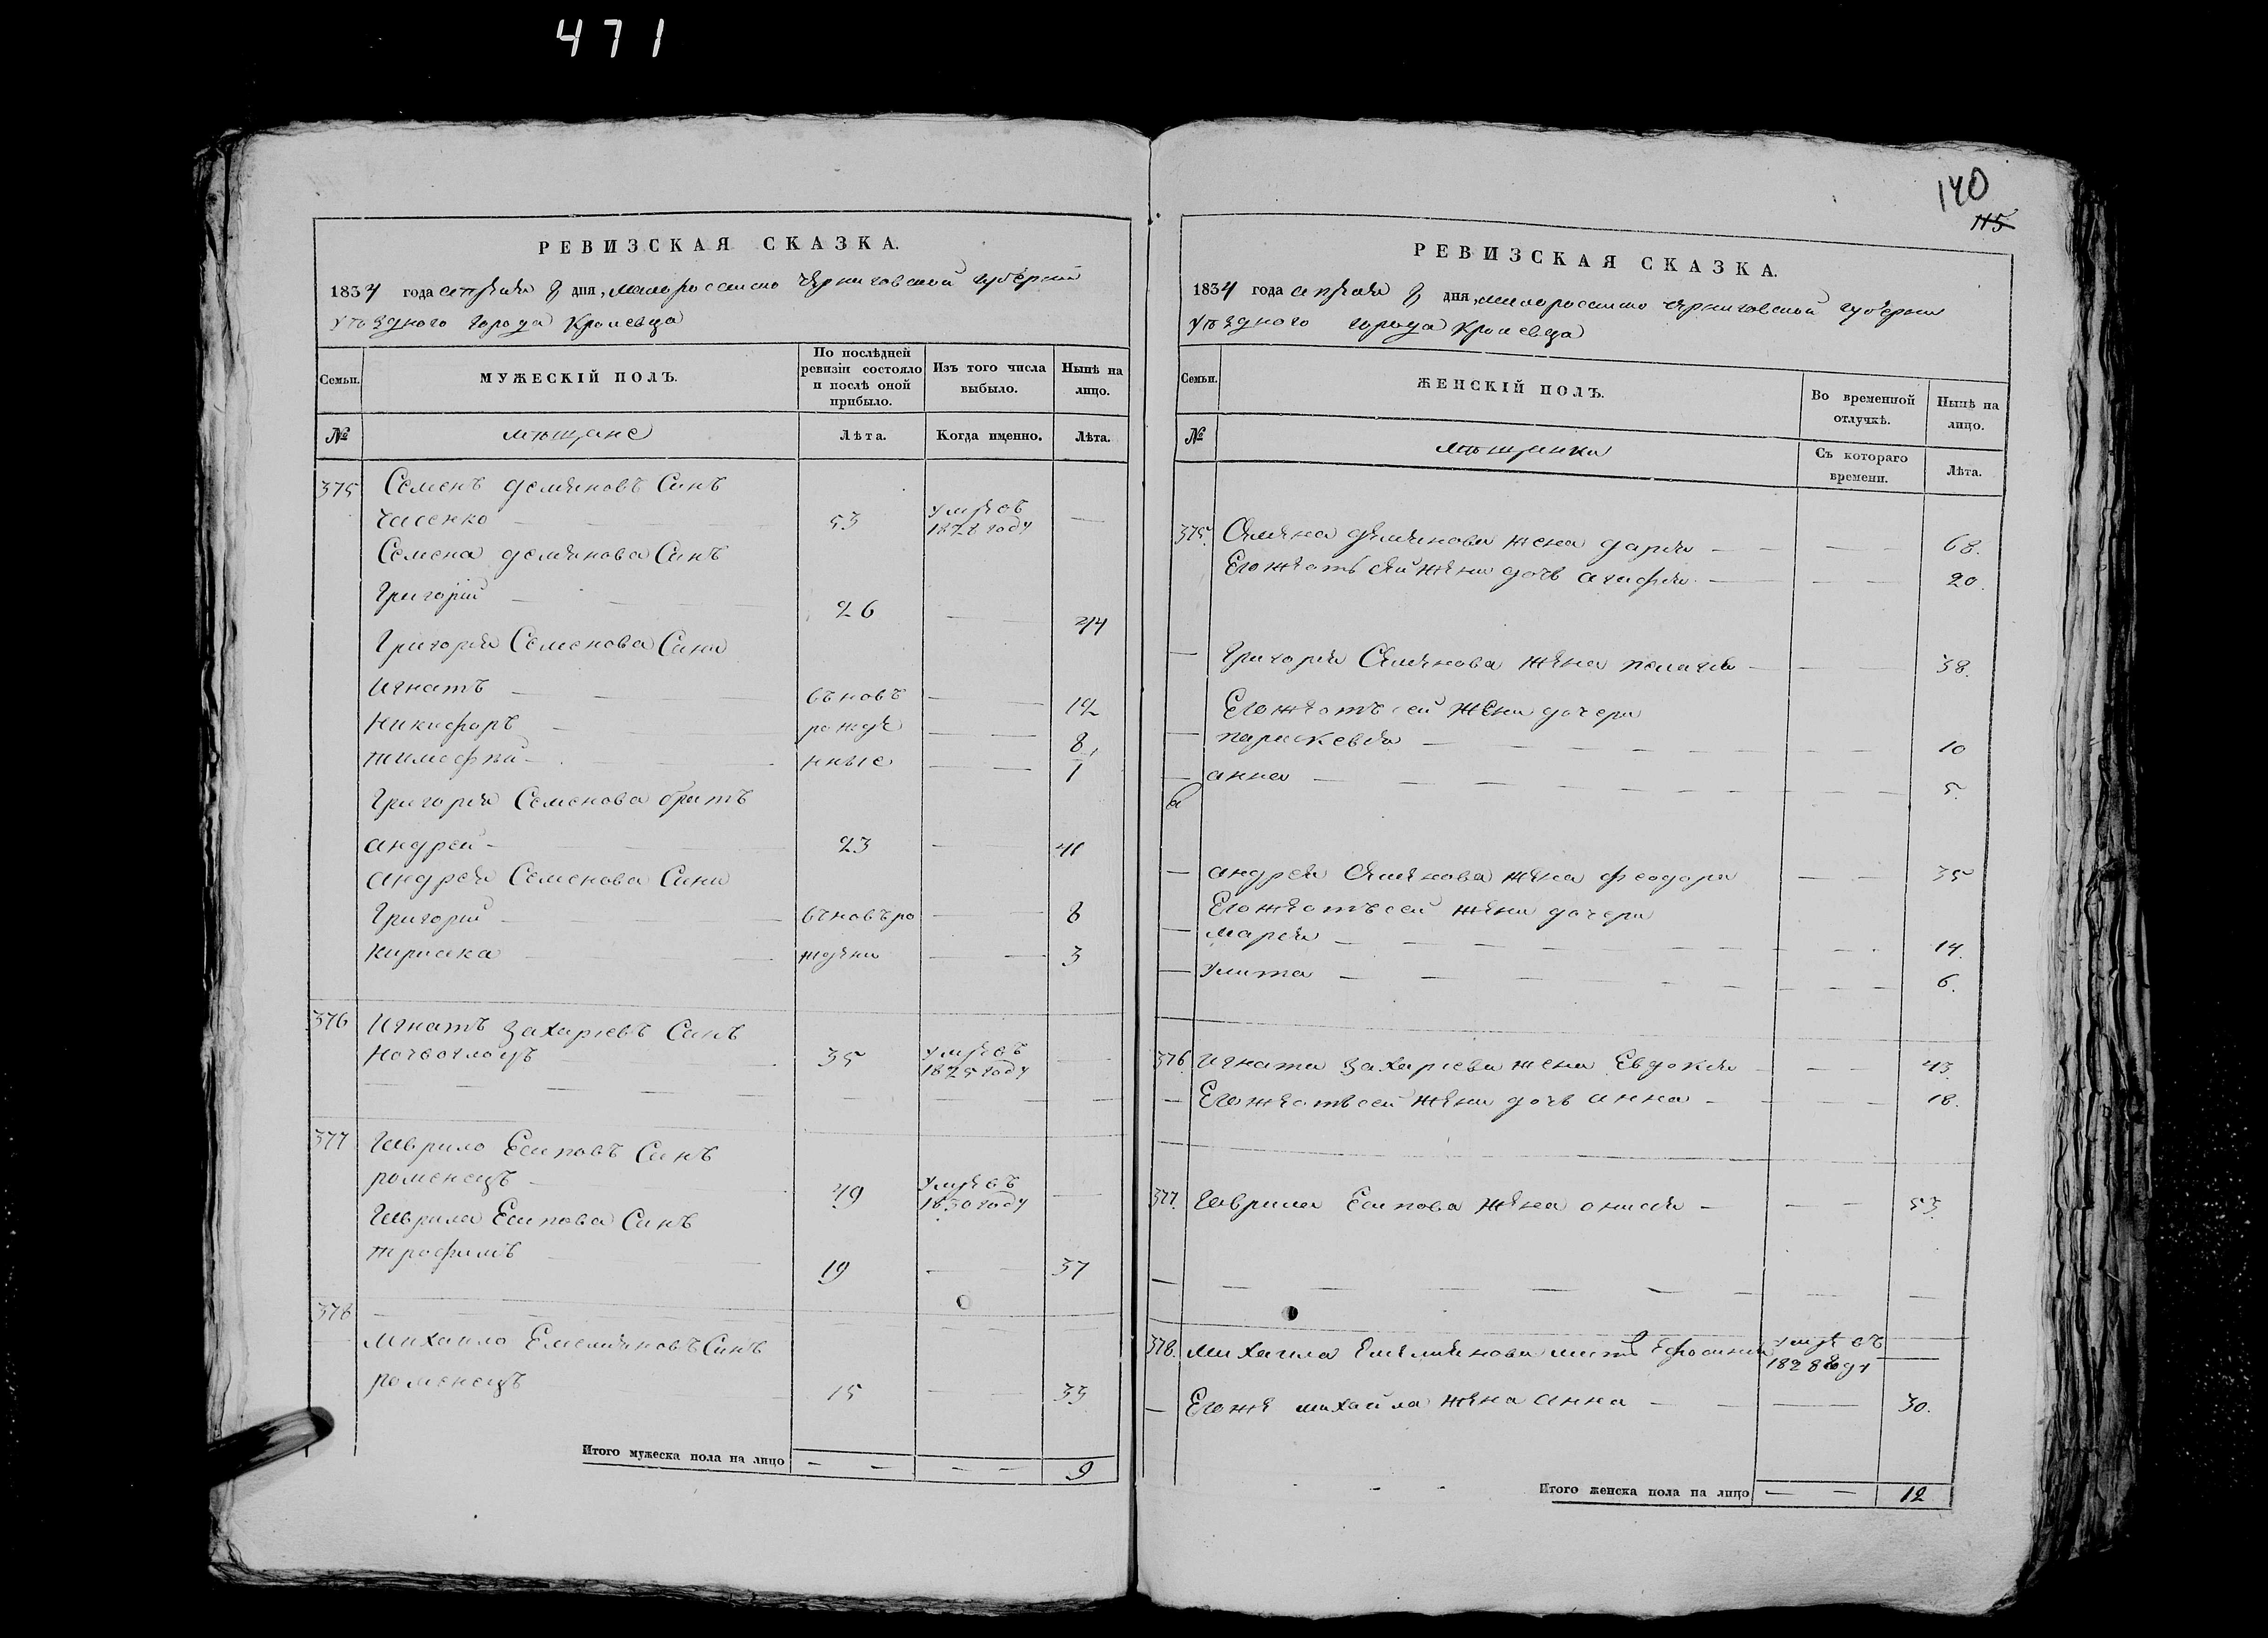 471
РЕВИЗСКАЯ СКАЗКА.
1834 года апреля 8 дня, малоросийско Черниговской губернии
уѣздного города Кролевца
Семьи.
МУЖЕСКІЙ ПОЛЪ.
По послѣдней ревизіи состояло и послѣ оной прибыло.
Изъ того числа выбыло.
Нынѣ на лицо.
№
мѣщане
Лѣта.
Когда именно.
Лѣта.
375 Семенъ Демяновъ Синъ
53 умре въ 1828 году —
Семена Демянова Синъ
Григорій — 26 — 44
Григорія Семенова Сини
Игнатъ — вѣновъ — 12
Никифоръ — рожде — 8
Тимофѣй — нные — 1
Григорія Семенова братъ
Андрей — 23 — 41
Андрея Семенова Сини
Григорій — вѣновъро — 8
Кириака — ждени — 3
376 Игнатъ Захариевъ Синъ
35 умре въ 1825 году —
377 Гаврило Есиповъ Синъ
роменецъ — 49 умре въ 1830 году —
Гаврила Есипова Синъ
Трофимъ — 19 — 37
378
Михаило Емелияновъ Синъ
роменецъ 15 — 33
Итого мужеска пола на лицо — — 9
140
115
РЕВИЗСКАЯ СКАЗКА.
1834 года апреля 8 дня, малоросийско Черниговской губернии
уѣздного города Кролевца
Семьи.
ЖЕНСКІЙ ПОЛЪ.
Во временной отлучкѣ.
Нынѣ на лицо.
№
мѣщанки
Съ котораго времени.
Лѣта.
375. Семена Демянова жена Дария — 68.
Его же отъ сей жени дочь Агафия — 20.
— Григория Семенова жена Пелагея — 38.
Его же отъ сей жени дочери
— Парискевия — 10
— Анна — 5.
— Андрея Семенова жена Феодора — 35
Его же отъ сей жени дочери
— Мария — 14.
— Улита — 6.
376. Игната Захариева жена Евдокия — 43.
— Его же отъ сей жени дочь Анна — 18.
377. Гаврила Есипова жена — 53.
378. Михаила Емелиянова мать Ефросиния умре въ 1828 году —
— Его же Михаила жена Анна — 30.
Итого женска пола на лицо — 12